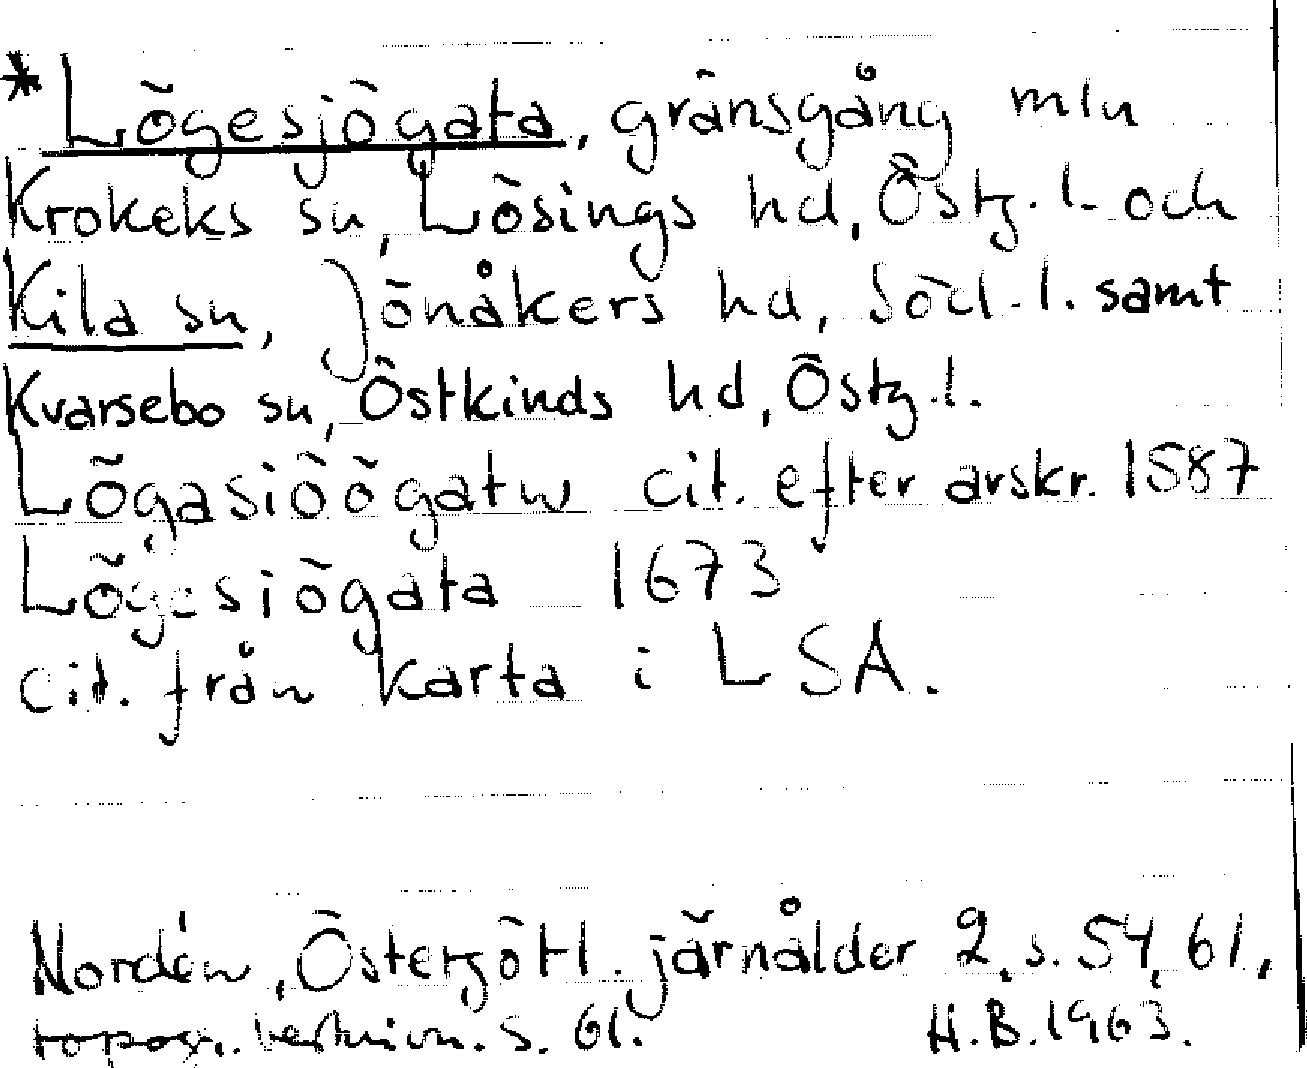 * Lögesjögata, gränsgång mln
Krokeks sn, Lösings hd, Östg. l. och
Kila sn, Jönåkers hd, Söd. l. samt
Kvarsebo sn, Östkinds hd, Östg. l.
Lögasiöögatw cit. efter avskr. 1587
Lögesiögata 1673
cit. från karta i LSA.
Nordén, Östergötl. järnålder 2, s. 54, 61,
topogr. beskrivn. s. 61. H.B. 1963.